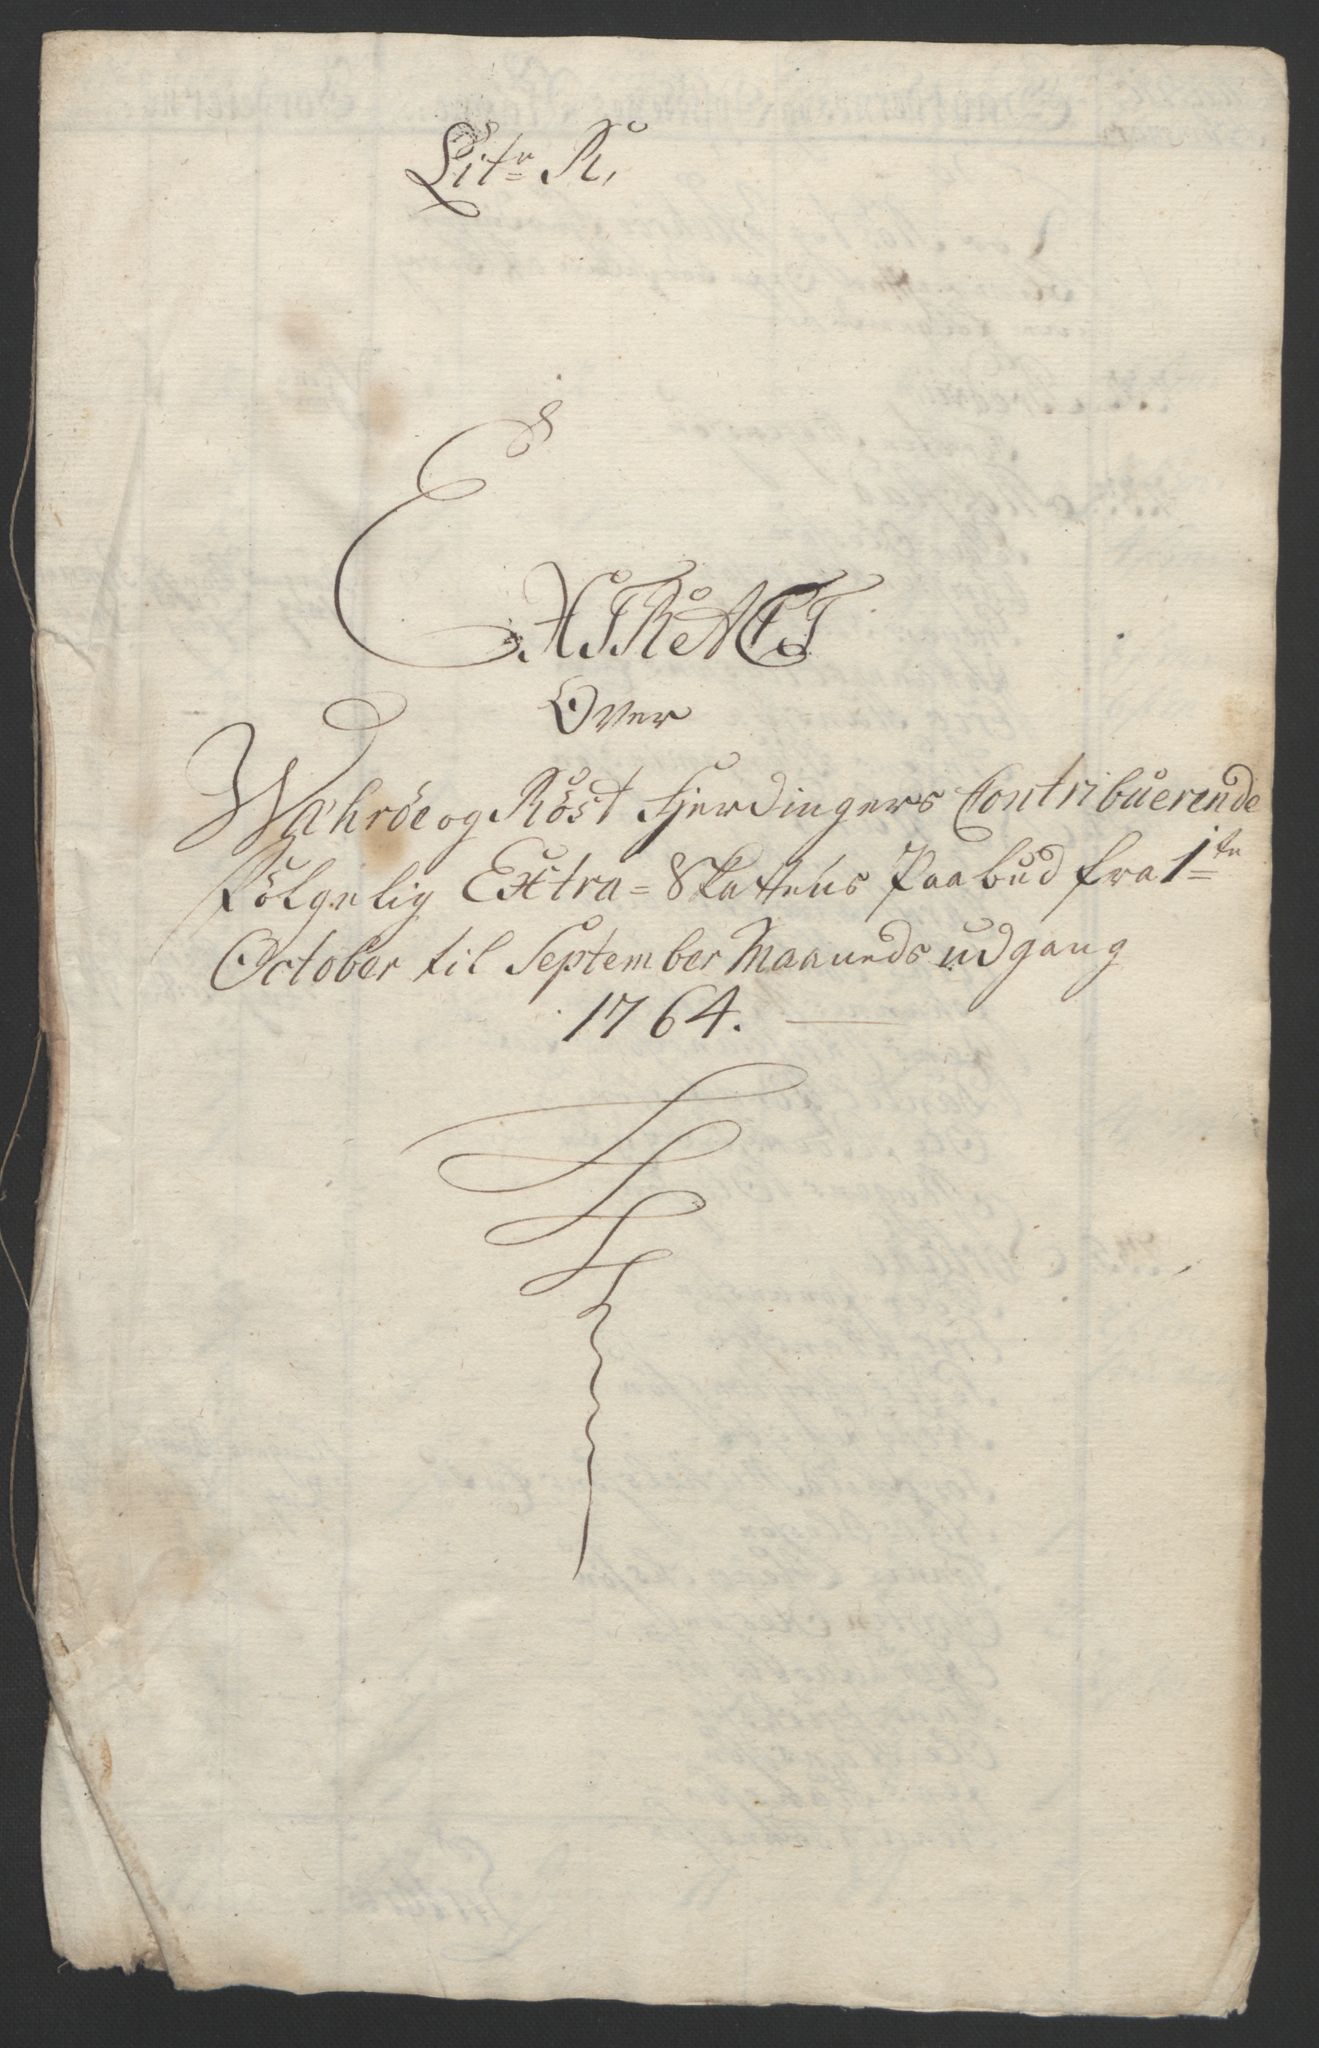 Litr R,
EXTRACT
Over
Wahrøe og Röst Fjerdingers Contribuerende
Fölgelig Extra= Skattens Paabud fra 1te
October til September Maaneds udgang
1764.